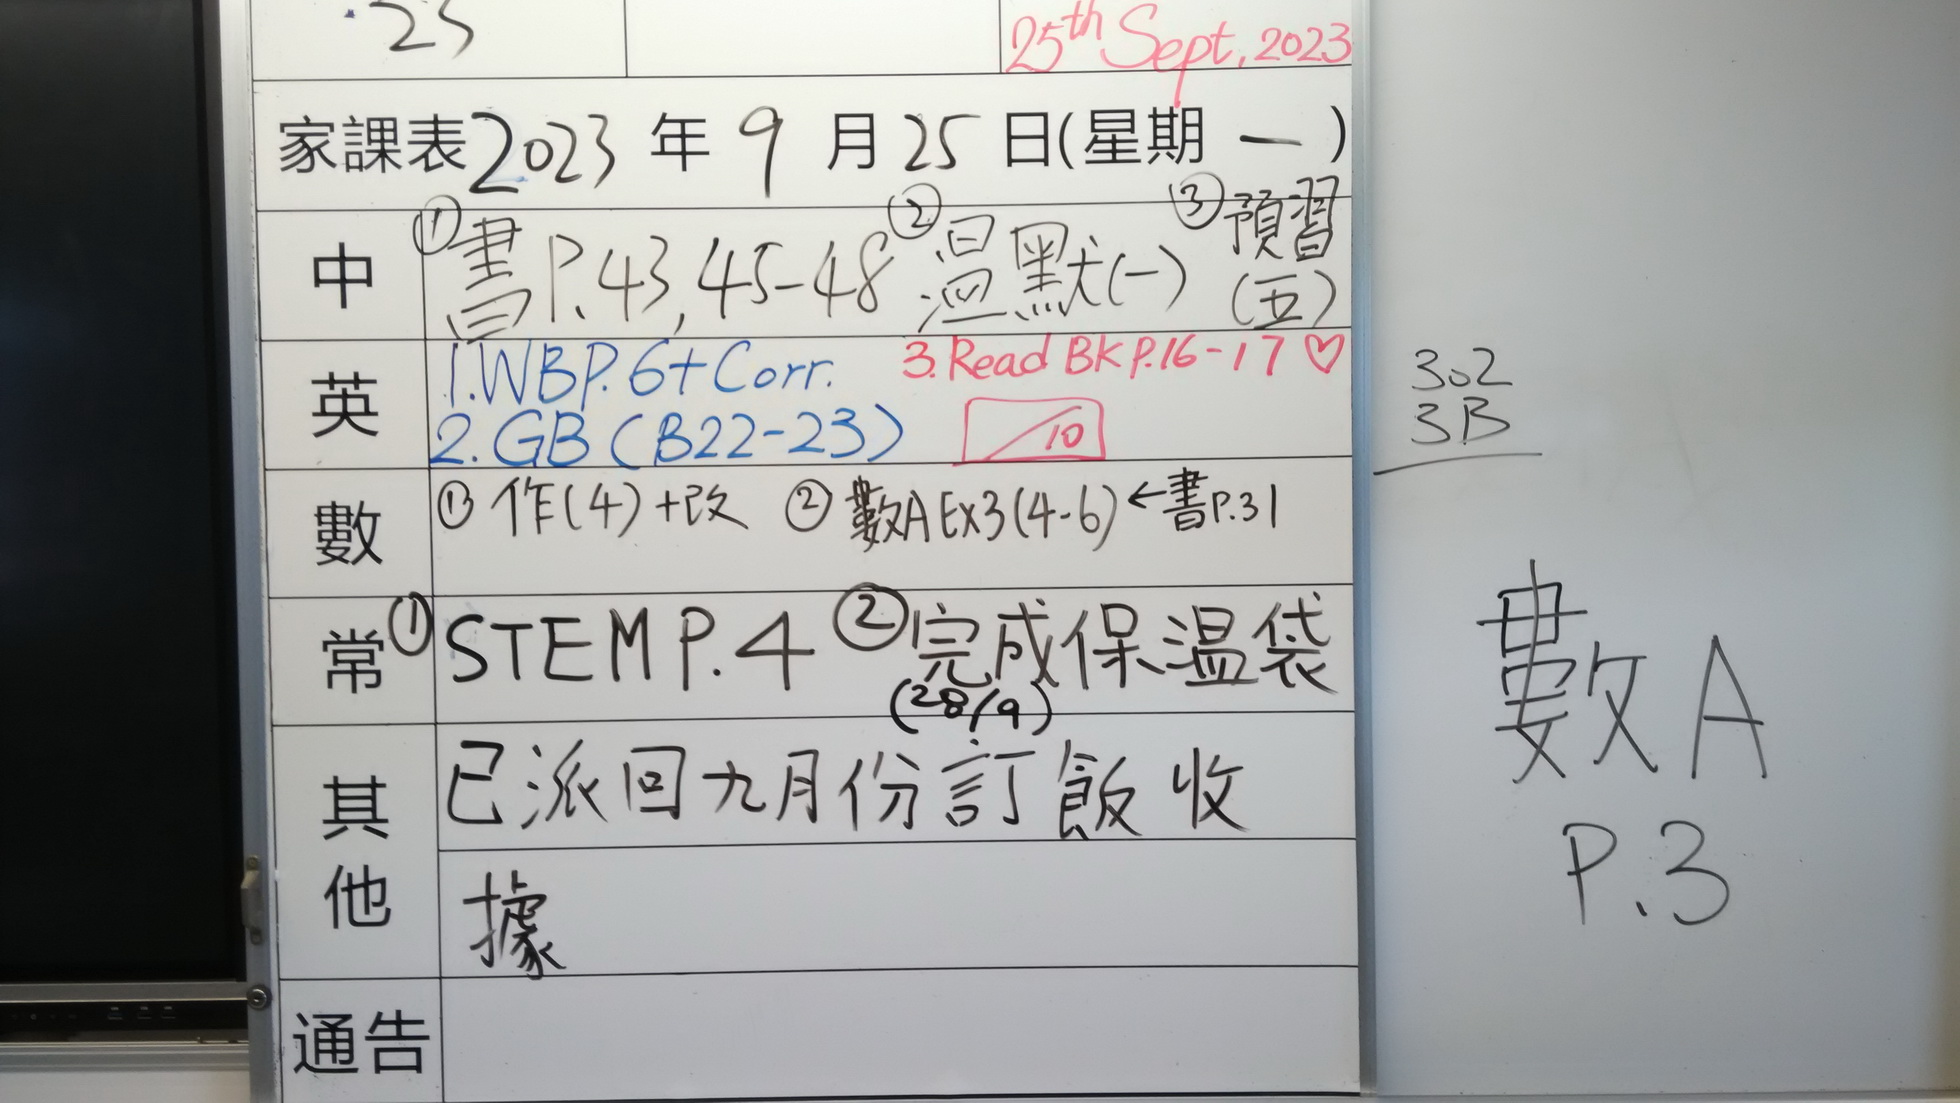 25th Sept, 2023
家課表2023年9月25日(星期一)
中
①書P.43,45-48 ②温默(一) ③預習(五)
英
1.WBP.6+Corr. 3.Read BKP.16-17♡
2.GB(B22-23) /10
數
① 作(4)+改 ② 數AEx3(4-6)←書P.31
常
①STEM P.4 ②完成保温袋
(28/9)
其他
已派回九月份訂飯收
據
通告
302
3B
數A
P.3